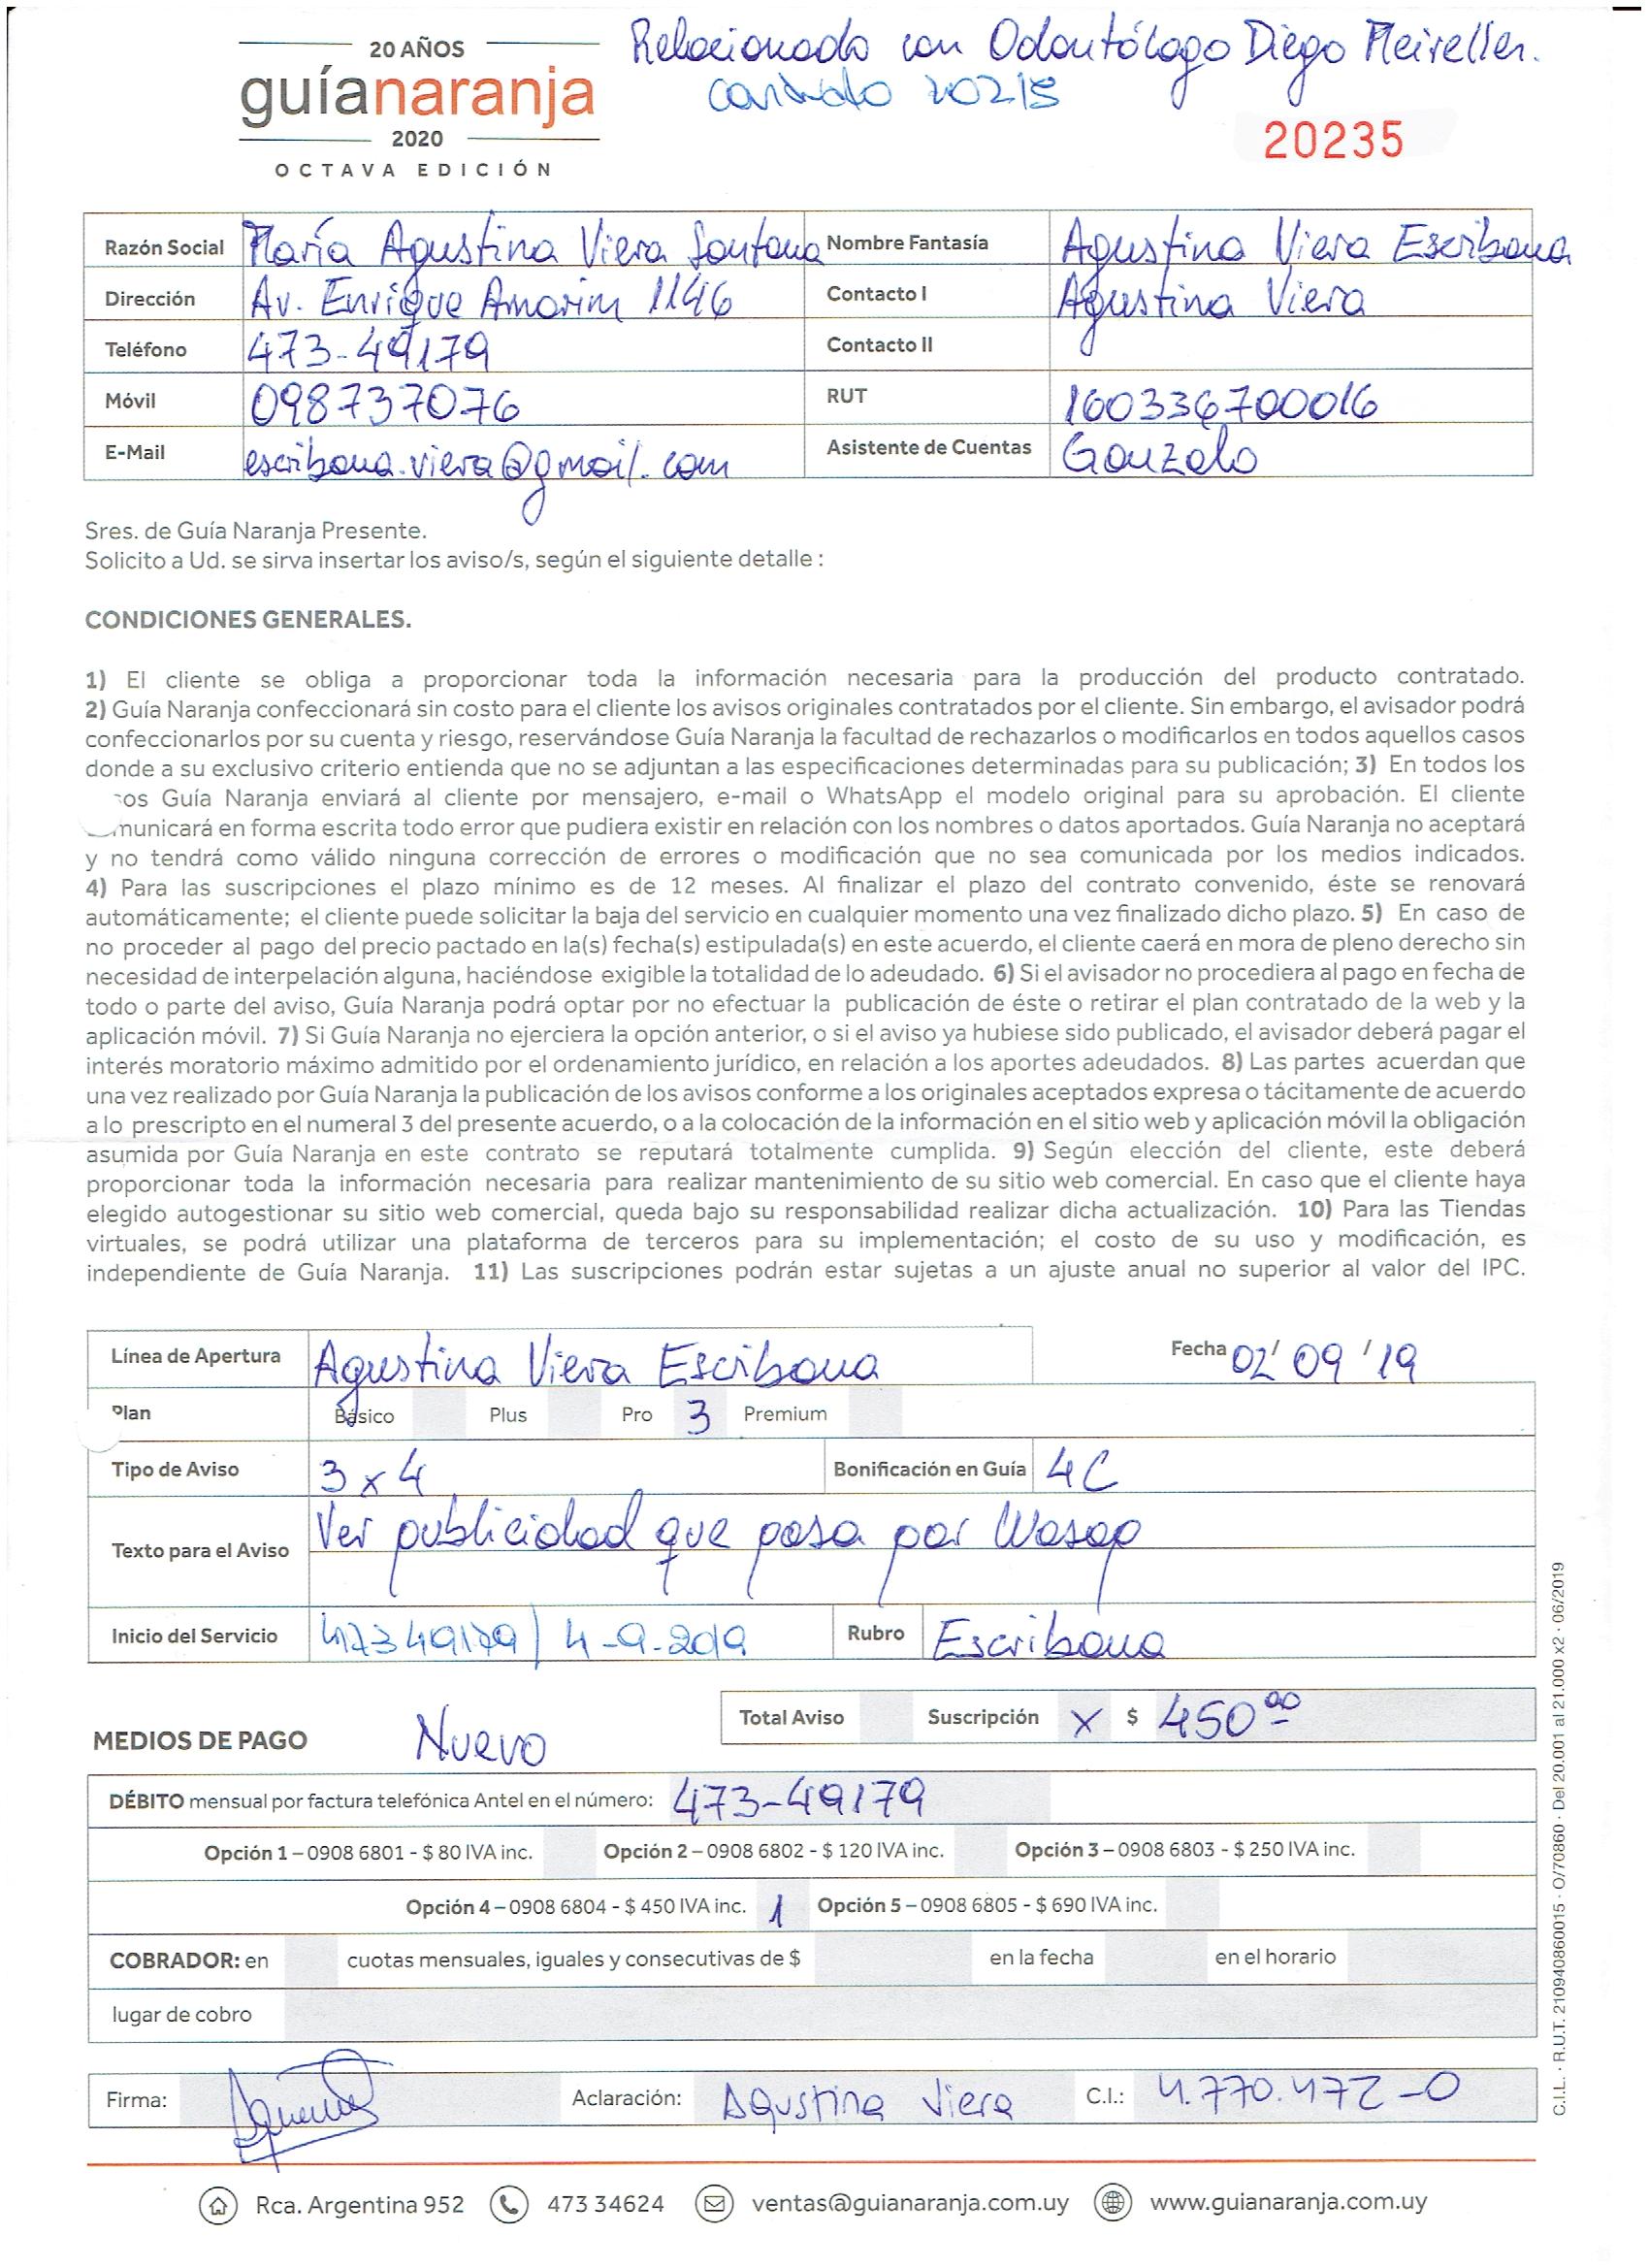 20 AÑOS
guíanaranja
2020
OCTAVA EDICIÓN
Relacionado con Odontólogo Diego Meirelles.
contrato 20215
20235
Razón Social María Agustina Viera Santana Nombre Fantasía Agustina Viera Escribana
Dirección Av. Enrique Amorim 1146 Contacto I Agustina Viera
Teléfono 473-49179 Contacto II
Móvil 098737076 RUT 160336700016
E-Mail escribana.viera@gmail.com Asistente de Cuentas Gonzalo
Sres. de Guía Naranja Presente.
Solicito a Ud. se sirva insertar los aviso/s, según el siguiente detalle :
CONDICIONES GENERALES.
1) El cliente se obliga a proporcionar toda la información necesaria para la producción del producto contratado.
2) Guía Naranja confeccionará sin costo para el cliente los avisos originales contratados por el cliente. Sin embargo, el avisador podrá
confeccionarlos por su cuenta y riesgo, reservándose Guía Naranja la facultad de rechazarlos o modificarlos en todos aquellos casos
donde a su exclusivo criterio entienda que no se adjuntan a las especificaciones determinadas para su publicación; 3) En todos los
os Guía Naranja enviará al cliente por mensajero, e-mail o WhatsApp el modelo original para su aprobación. El cliente
municará en forma escrita todo error que pudiera existir en relación con los nombres o datos aportados. Guía Naranja no aceptará
y no tendrá como válido ninguna corrección de errores o modificación que no sea comunicada por los medios indicados.
4) Para las suscripciones el plazo mínimo es de 12 meses. Al finalizar el plazo del contrato convenido, éste se renovará
automáticamente; el cliente puede solicitar la baja del servicio en cualquier momento una vez finalizado dicho plazo. 5) En caso de
no proceder al pago del precio pactado en la(s) fecha(s) estipulada(s) en este acuerdo, el cliente caerá en mora de pleno derecho sin
necesidad de interpelación alguna, haciéndose exigible la totalidad de lo adeudado. 6) Si el avisador no procediera al pago en fecha de
todo o parte del aviso, Guía Naranja podrá optar por no efectuar la publicación de éste o retirar el plan contratado de la web y la
aplicación móvil. 7) Si Guía Naranja no ejerciera la opción anterior, o si el aviso ya hubiese sido publicado, el avisador deberá pagar el
interés moratorio máximo admitido por el ordenamiento jurídico, en relación a los aportes adeudados. 8) Las partes acuerdan que
una vez realizado por Guía Naranja la publicación de los avisos conforme a los originales aceptados expresa o tácitamente de acuerdo
a lo prescripto en el numeral 3 del presente acuerdo, o a la colocación de la información en el sitio web y aplicación móvil la obligación
asumida por Guía Naranja en este contrato se reputará totalmente cumplida. 9) Según elección del cliente, este deberá
proporcionar toda la información necesaria para realizar mantenimiento de su sitio web comercial. En caso que el cliente haya
elegido autogestionar su sitio web comercial, queda bajo su responsabilidad realizar dicha actualización. 10) Para las Tiendas
virtuales, se podrá utilizar una plataforma de terceros para su implementación; el costo de su uso y modificación, es
independiente de Guía Naranja. 11) Las suscripciones podrán estar sujetas a un ajuste anual no superior al valor del IPC.
Línea de Apertura Agustina Viera Escribana Fecha 02/ 09 / 19
Plan Básico Plus Pro 3 Premium
Tipo de Aviso 3 x 4 Bonificación en Guía 4C
Texto para el Aviso Ver publicidad que pasa por Wasap
Inicio del Servicio 47349179 / 4-9-2019 Rubro Escribana
Total Aviso Suscripción X $ 450.00
MEDIOS DE PAGO Nuevo
DÉBITO mensual por factura telefónica Antel en el número: 473-49179
Opción 1 – 0908 6801 - $ 80 IVA inc. Opción 2 – 0908 6802 - $ 120 IVA inc. Opción 3 – 0908 6803 - $ 250 IVA inc.
Opción 4 – 0908 6804 - $ 450 IVA inc. 1 Opción 5 – 0908 6805 - $ 690 IVA inc.
COBRADOR: en cuotas mensuales, iguales y consecutivas de $ en la fecha en el horario
lugar de cobro
Firma: Aclaración: Agustina Viera C.I.: 4.770.472-0
Rca. Argentina 952 473 34624 ventas@guianaranja.com.uy www.guianaranja.com.uy
C.I.L. · R.U.T. 210940860015 · O/70860 · Del 20.001 al 21.000 x2 · 06/2019